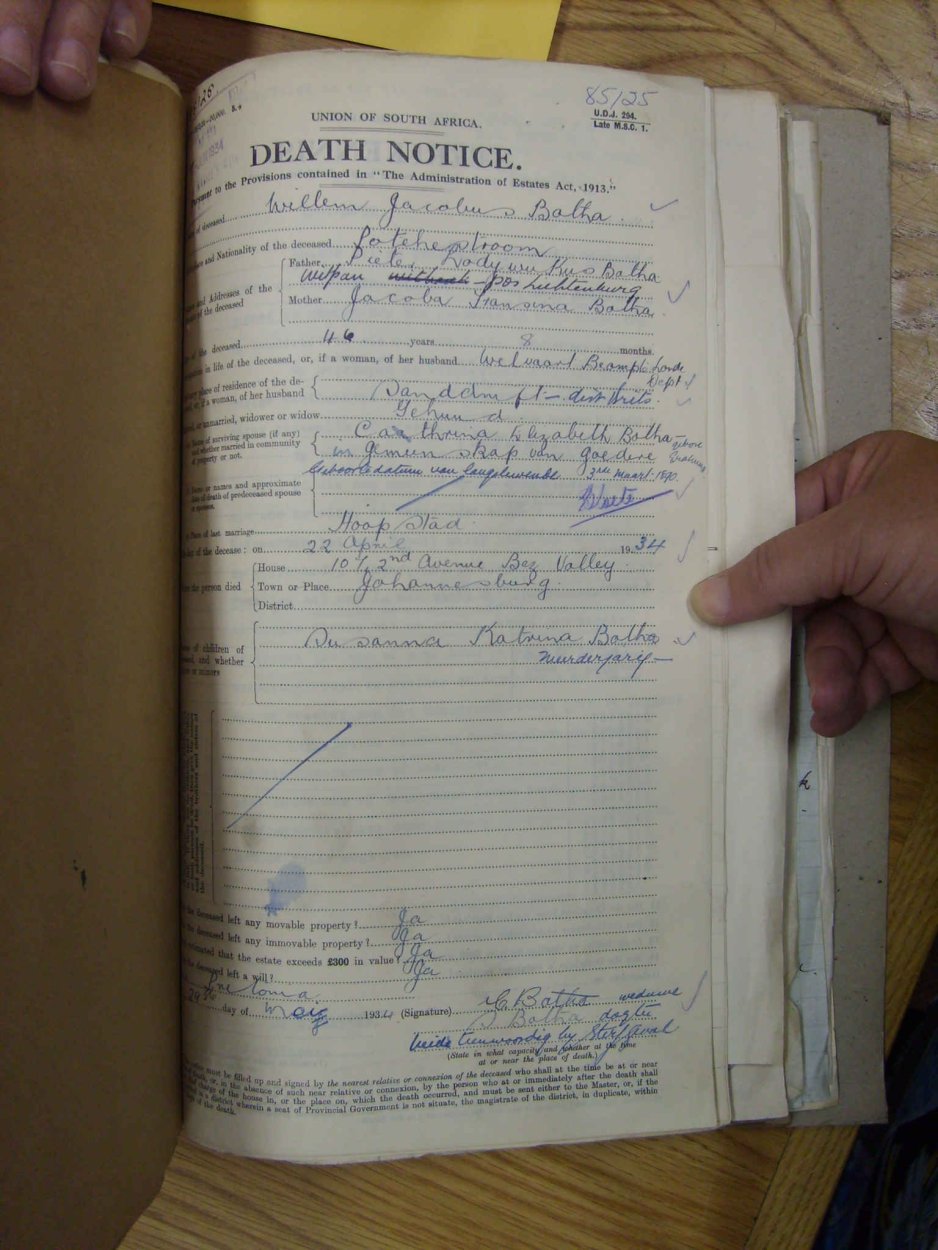 85/25
U.D.J. 294.
Late M.S.C. 1.
UNION OF SOUTH AFRICA.
DEATH NOTICE.
to the Provisions contained in "The Administration of Estates Act, 1913."
of deceased Willem Jacobus Botha
and Nationality of the deceased Potchefstroom
Father Pieter Lodywikus Botha
pos Lichtenburg
and Addresses of the
of the deceased
Mother Jacoba Fransina Botha
the deceased 46 years 8 months.
in life of the deceased, or, if a woman, of her husband Welvaart Beampte Lands
Dept
place of residence of the de-
if a woman, of her husband Sanddrift - dist Brits
unmarried, widower or widow Gehuud
of surviving spouse (if any)
whether married in community
of property or not.
Cathrina Elizabeth Botha gebore
in gemeenskap van goedere
Geboortedatum van langslewende 3rde Maart 1890.
or names and approximate
of death of predeceased spouse
or spouses.
Place of last marriage Hoopstad
of the decease: on 22 April 1934
House 107 2nd Avenue Bez Valley
the person died Town or Place Johannesburg
District
of children of
and whether
or minors
Susanna Katrina Botha
minderjarig
the deceased left any movable property? Ja
the deceased left any immovable property? Ja
estimated that the estate exceeds £300 in value? Ja
the deceased left a will? Ja
day of Mei 1934 (Signature) C Botha weduwe
S Botha dogter
beide teenwoordig by Sterfgeval
(State in what capacity and whether at the time
at or near the place of death.)
must be filled up and signed by the nearest relative or connexion of the deceased who shall at the time be at or near
death, or, in the absence of such near relative or connexion, by the person who at or immediately after the death shall
charge of the house in, or the place on, which the death occurred, and must be sent either to the Master, or, if the
a district wherein a seat of Provincial Government is not situate, the magistrate of the district, in duplicate, within
of the death.